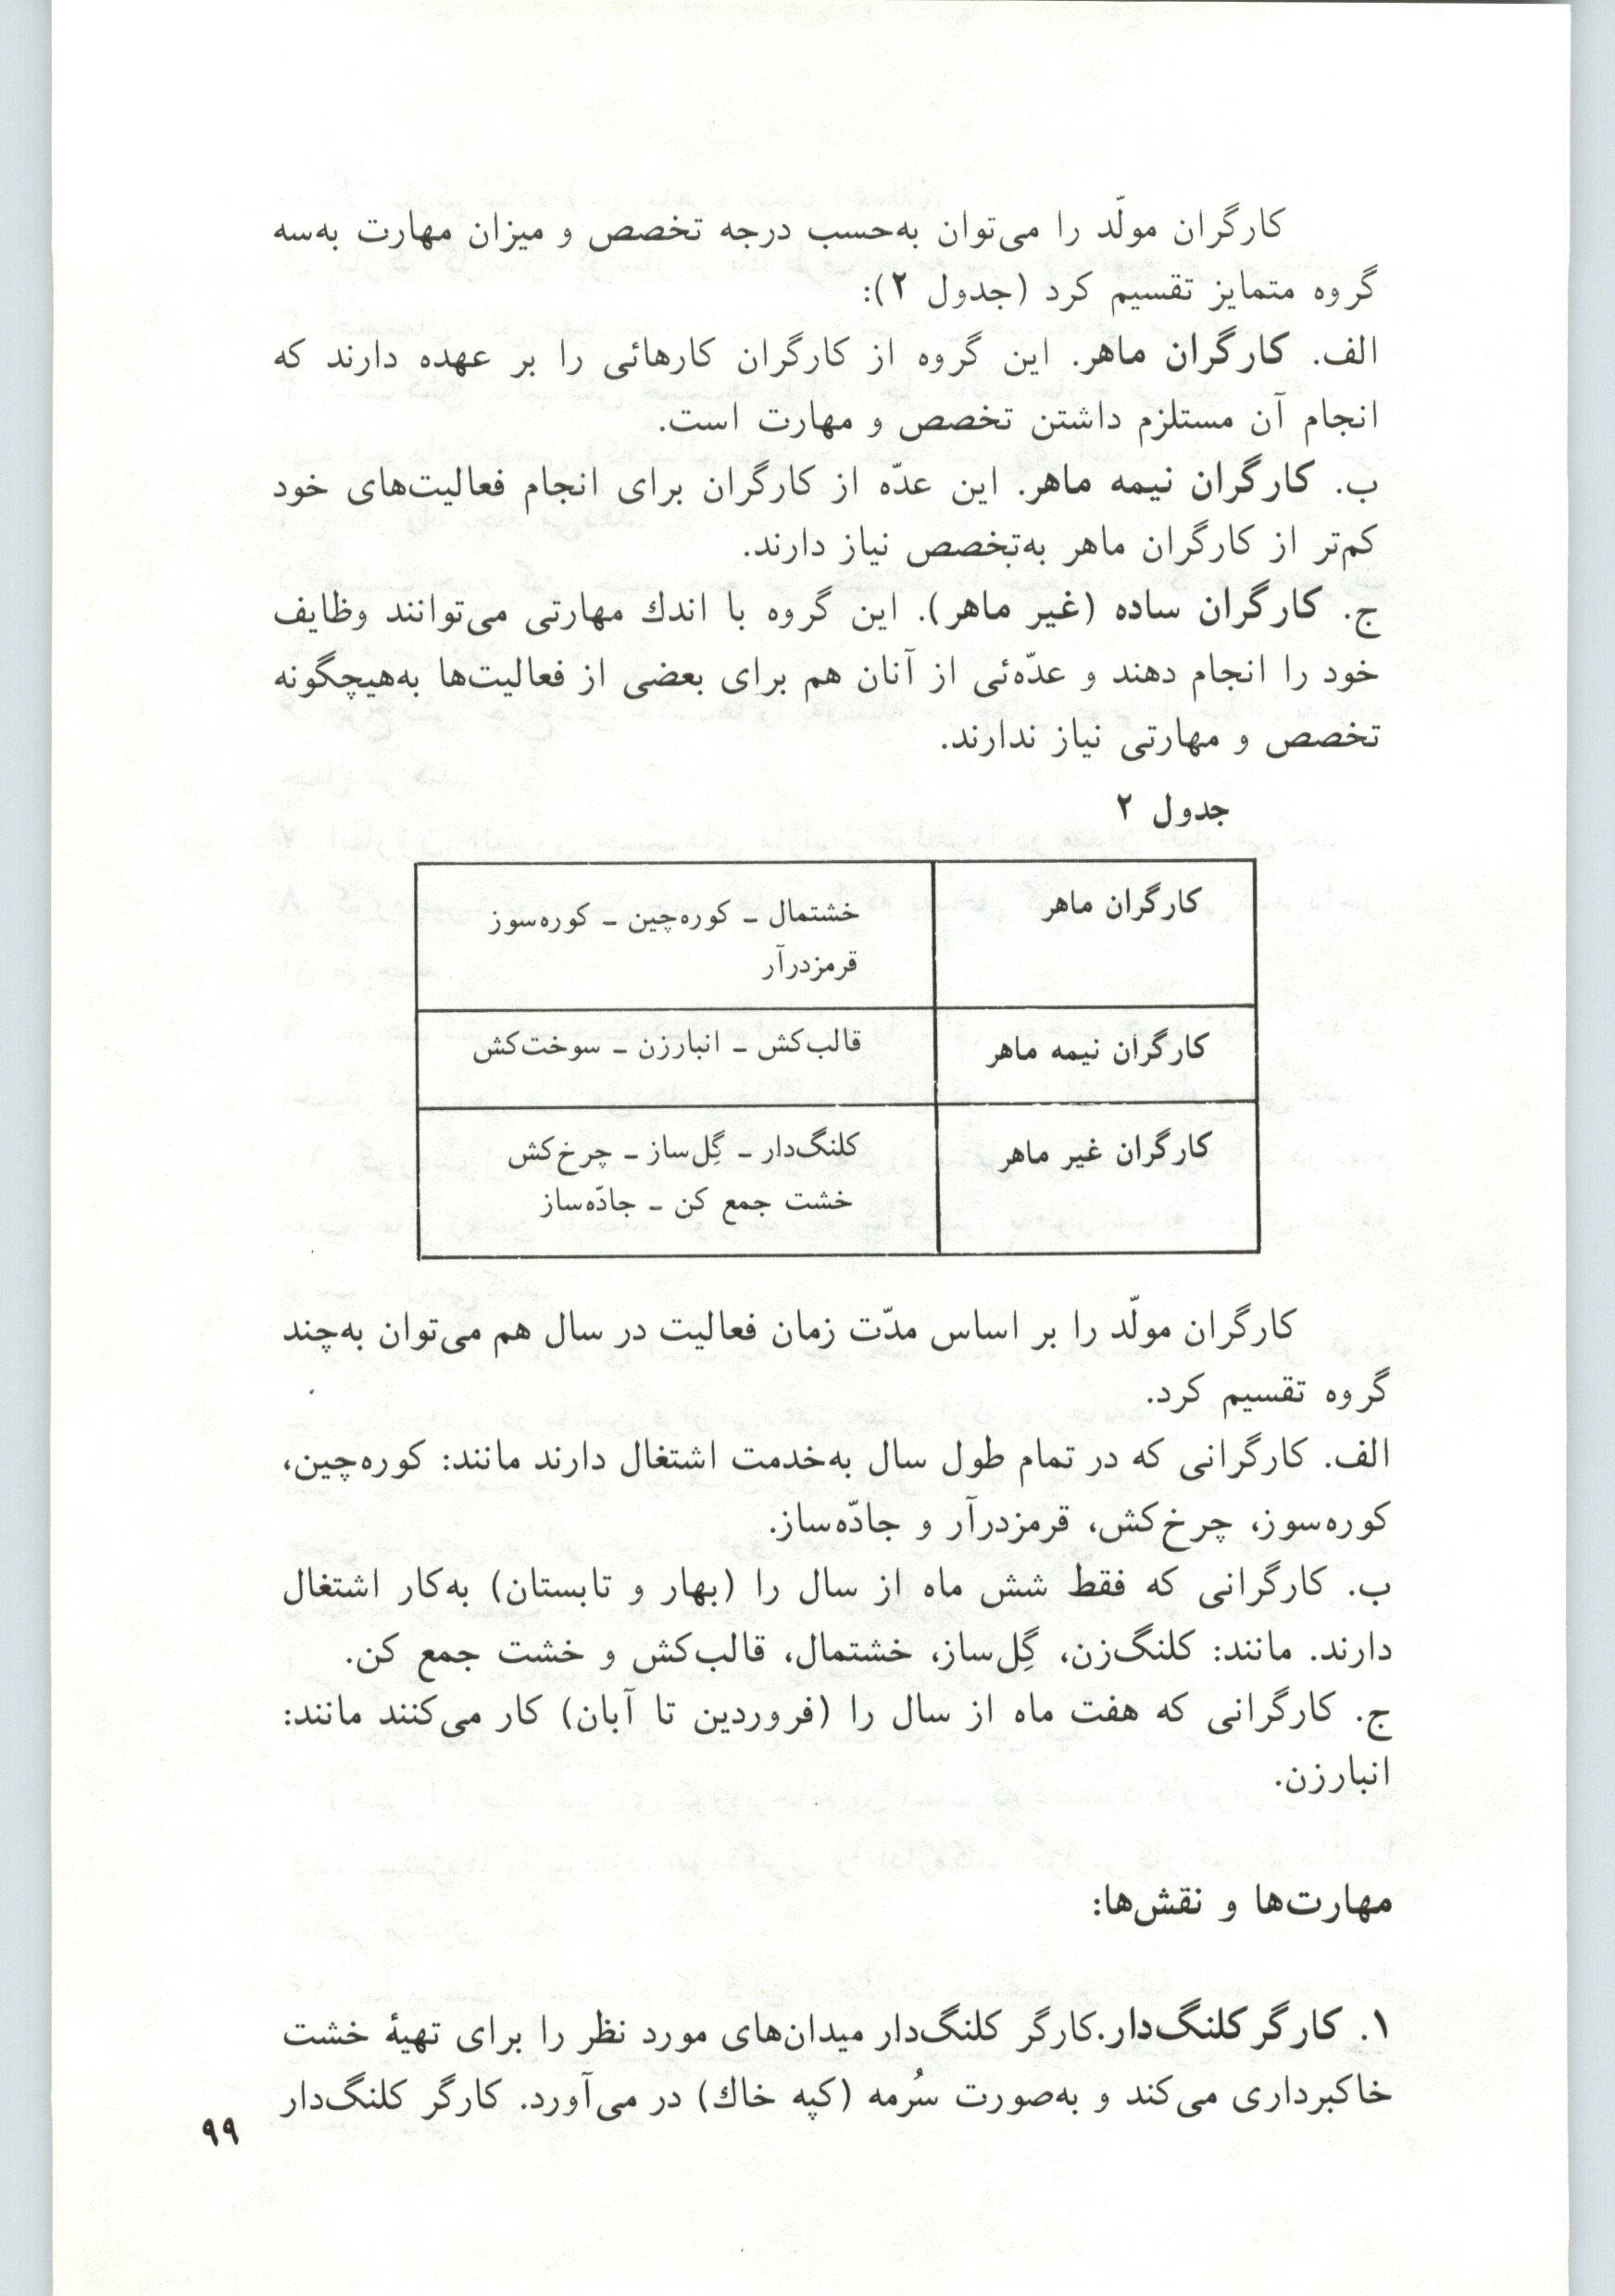 کارگران مولّد را می‌توان به‌حسب درجه تخصص و میزان مهارت به‌سه
گروه متمایز تقسیم کرد (جدول ۲):
الف. کارگران ماهر. این گروه از کارگران کارهائی را بر عهده دارند که
انجام آن مستلزم داشتن تخصص و مهارت است.
ب. کارگران نیمه ماهر. این عدّه از کارگران برای انجام فعالیت‌های خود
کم‌تر از کارگران ماهر به‌تخصص نیاز دارند.
ج. کارگران ساده (غیر ماهر). این گروه با اندك مهارتی می‌توانند وظایف
خود را انجام دهند و عدّه‌ئی از آنان هم برای بعضی از فعالیت‌ها به‌هیچگونه
تخصص و مهارتی نیاز ندارند.
جدول ۲
کارگران ماهر
خشتمال ـ کوره‌چین ـ کوره‌سوز
قرمزدرآر
کارگران نیمه ماهر
قالب‌کش ـ انبارزن ـ سوخت‌کش
کارگران غیر ماهر
کلنگ‌دار ـ گِل‌ساز ـ چرخ‌کش
خشت جمع کن ـ جادّه‌ساز
کارگران مولّد را بر اساس مدّت زمان فعالیت در سال هم می‌توان به‌چند
گروه تقسیم کرد.
الف. کارگرانی که در تمام طول سال به‌خدمت اشتغال دارند مانند: کوره‌چین،
کوره‌سوز، چرخ‌کش، قرمزدرآر و جادّه‌ساز.
ب. کارگرانی که فقط شش ماه از سال را (بهار و تابستان) به‌کار اشتغال
دارند. مانند: کلنگ‌زن، گِل‌ساز، خشتمال، قالب‌کش و خشت جمع کن.
ج. کارگرانی که هفت ماه از سال را (فروردین تا آبان) کار می‌کنند مانند:
انبارزن.
مهارت‌ها و نقش‌ها:
۱. کارگر کلنگ‌دار.کارگر کلنگ‌دار میدان‌های مورد نظر را برای تهیهٔ خشت
خاکبرداری می‌کند و به‌صورت سُرمه (کپه خاك) در می‌آورد. کارگر کلنگ‌دار
۹۹